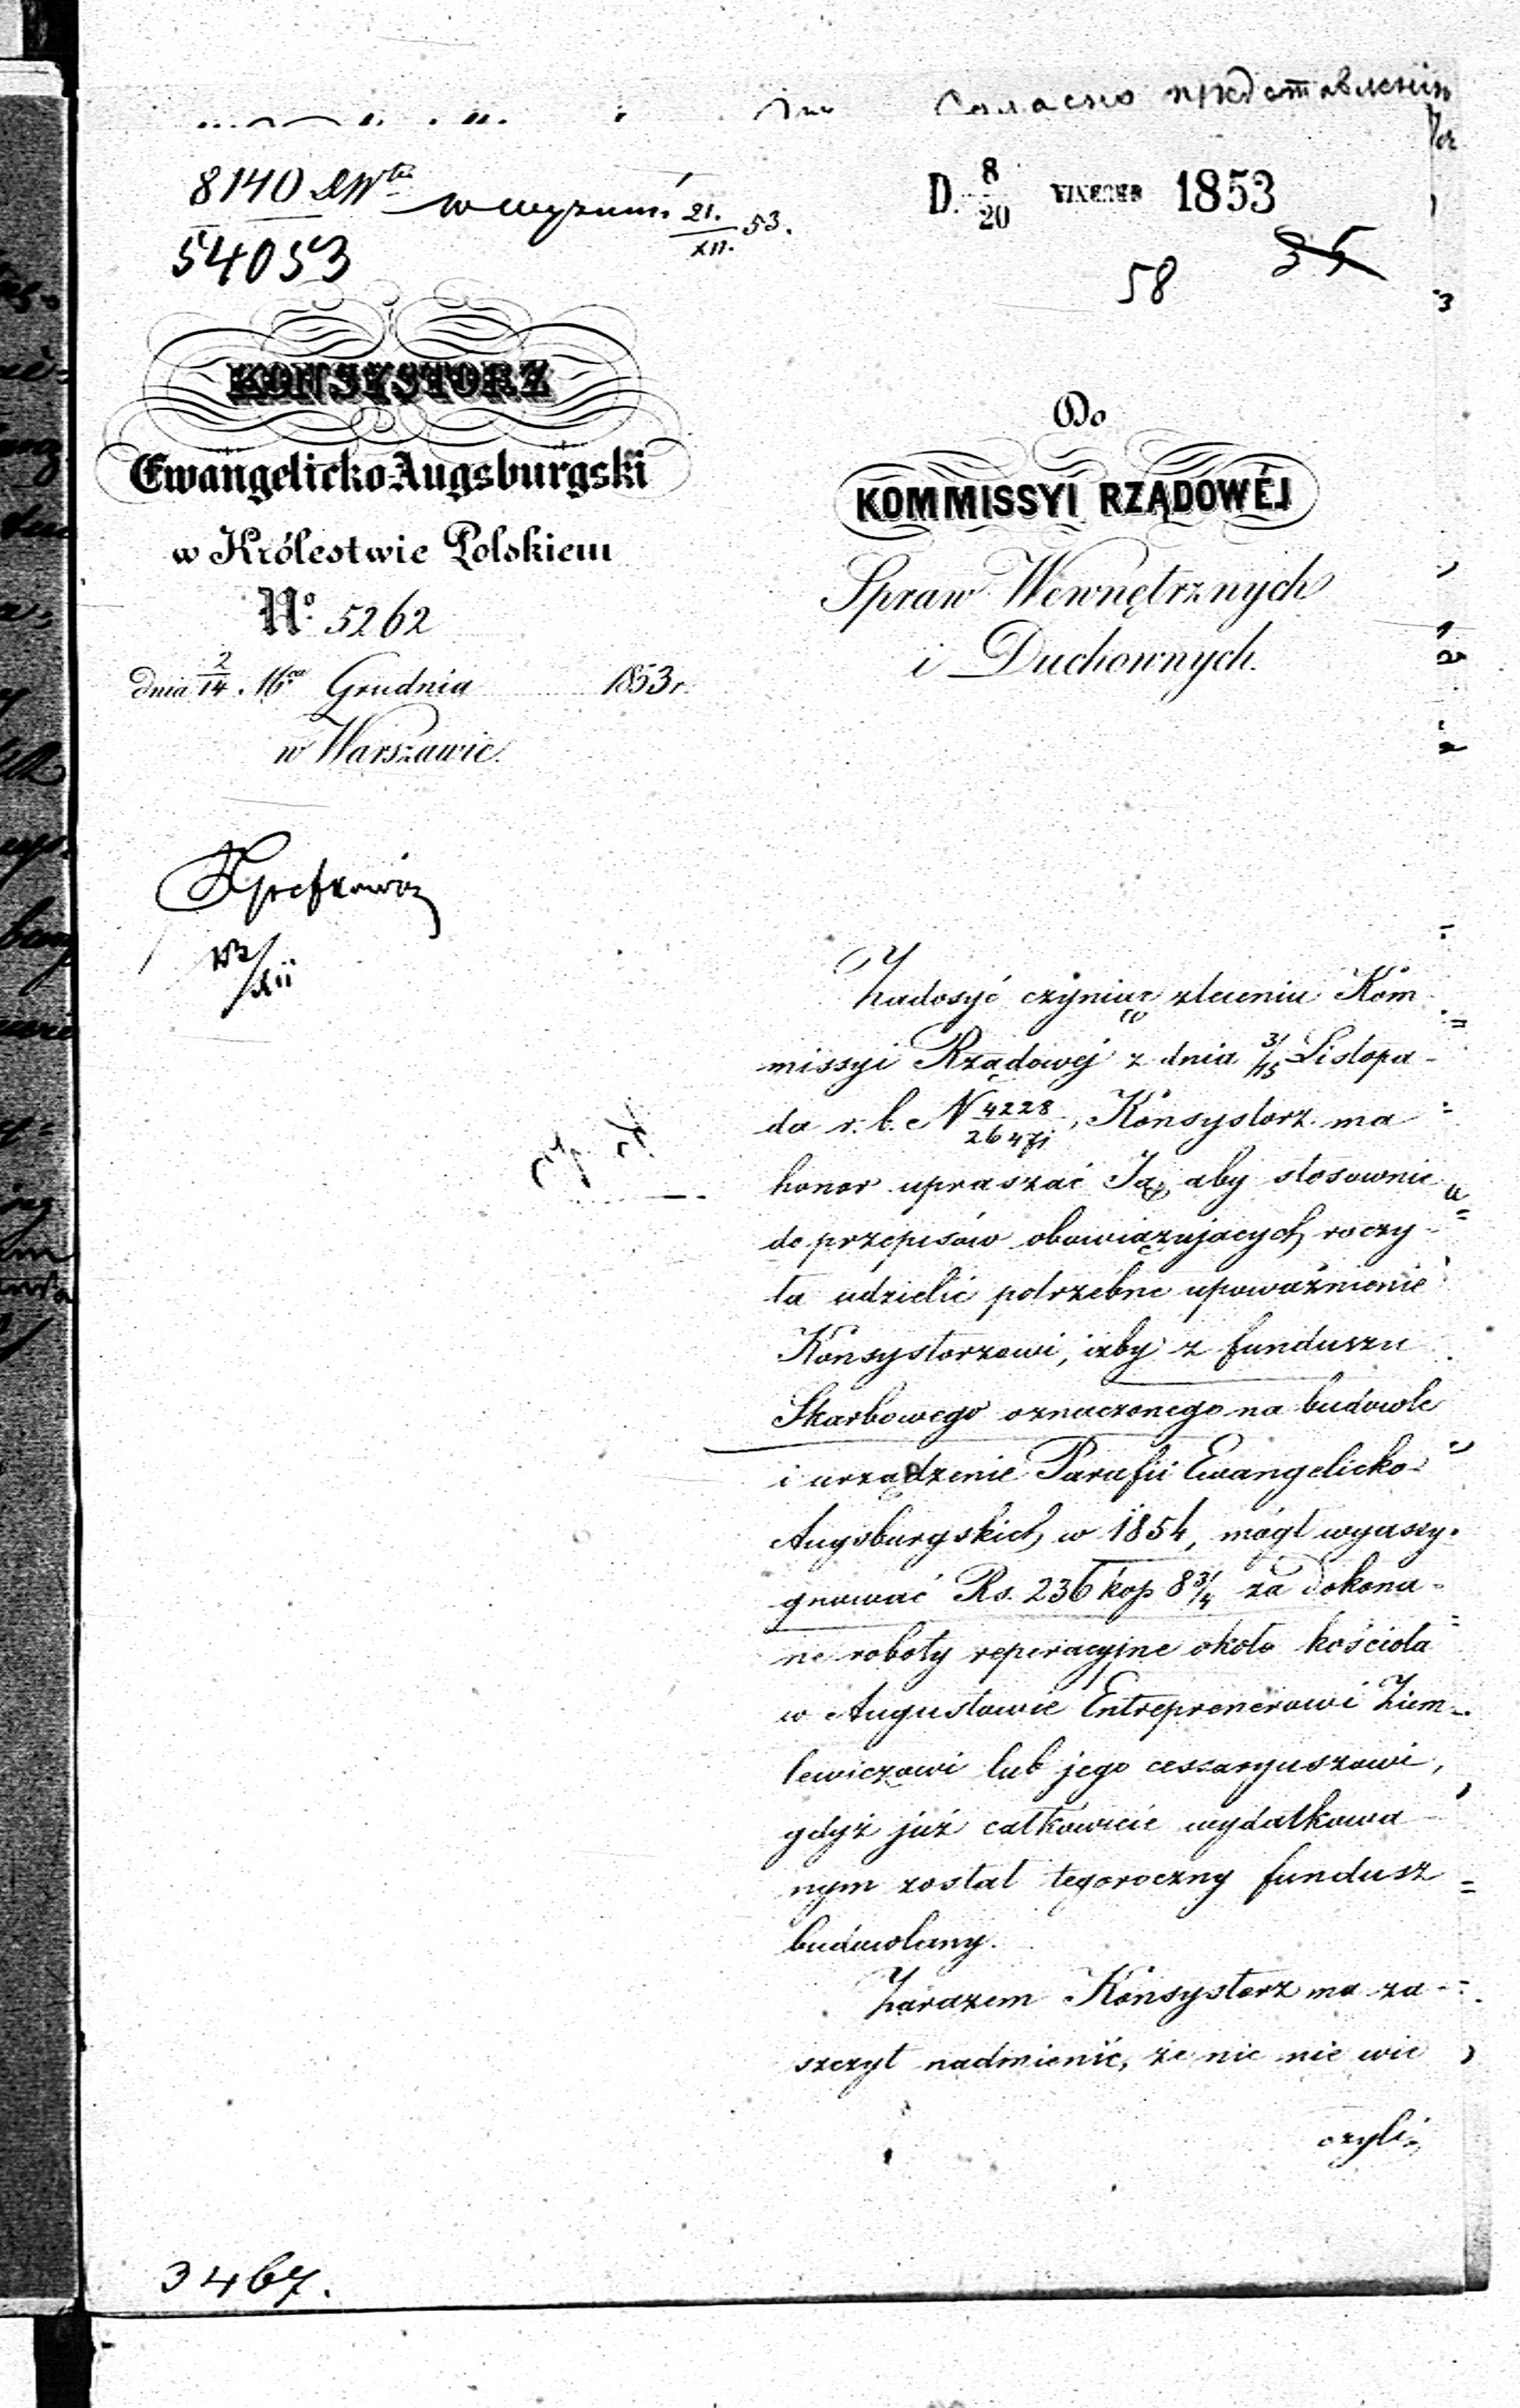 согласно представленію
8140
54053
21./XII. 53.
D. 8/20 1853
58 35
KONSYSTORZ
Ewangelicko Augsburgski
w Królestwie Polskiem
No. 5262
dnia 2/14 Grudnia 1853 r.
w Warszawie.
Do
KOMMISSYI RZĄDOWÉJ
Spraw Wewnętrznych
i Duchownych.
Zadosyć czyniąc zleceniu Kom
missyi Rządowéj z dnia 3/15 Listopa-
da r. b. N 4228/26471, Konsystorz ma
honor upraszać Ją, aby stosownie
do przepisów obowiązujących raczy-
ła udzielić potrzebne upoważnienie
Konsystorzowi, iżby z funduszu
Skarbowego oznaczonego na budowle
i urządzenie Parafii Ewangelicko-
Augsburgskich w 1854, mógł wyassy-
gnować Rs. 236 kop 8 3/4 za dokona-
ne roboty reperacyjne około kościoła
w Augustowie Entreprenerowi Ziem-
lewiczowi lub jego cessaryuszowi,
gdyż już całkowicie wydatkowa
nym został tegoroczny fundusz
budowlany.
Zarazem Konsystorz ma za-
szczyt nadmienić, że nic nie wie
czyli
3467.